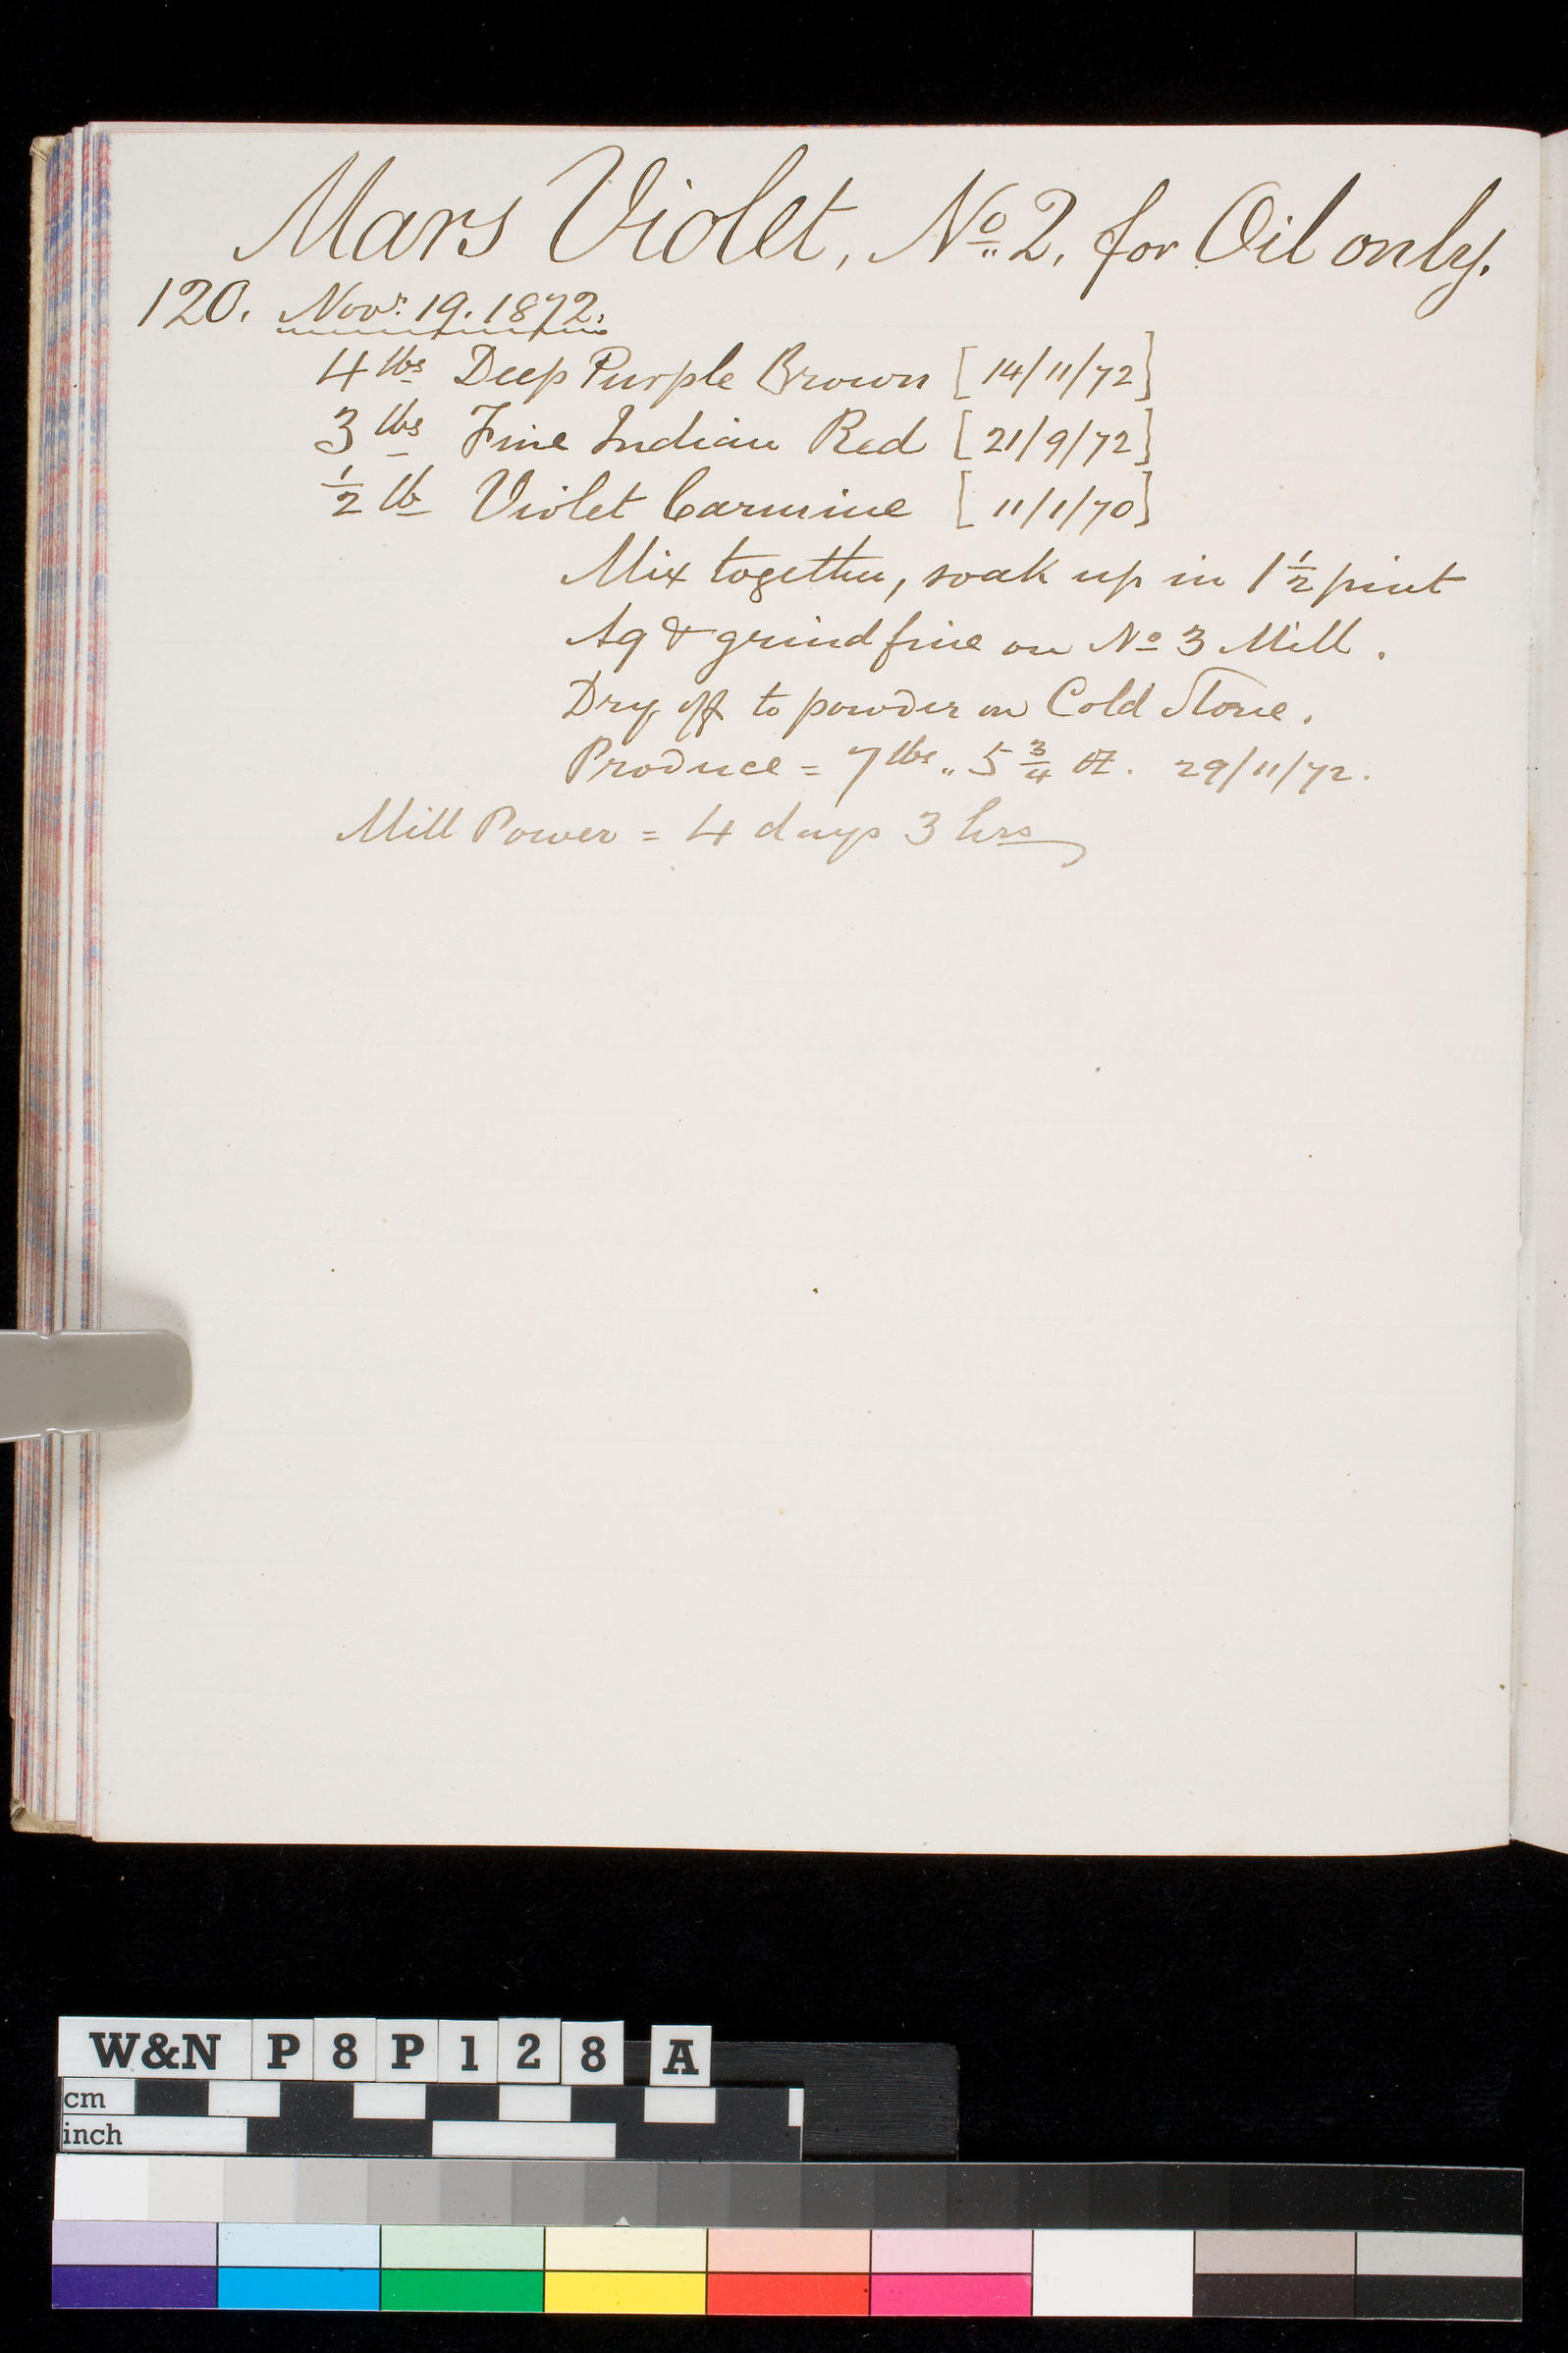 Mars Violet, Nº 2, for Oil only.
120. Novr. 19. 1872.
4 lbs Deep Purple Brown [14/11/72]
3 lbs Fine Indian Red [21/9/72]
½ lb Violet Carmine [11/1/70]
Mix together, soak up in 1 ½ pint
Aq & grind fine on Nº 3 Mill.
Dry off to powder on Cold Stone.
Produce = 7 lbs „ 5 ¾ oz. 29/11/72.
Mill Power = 4 days 3 hrs
W&N P8P128 A
cm
inch